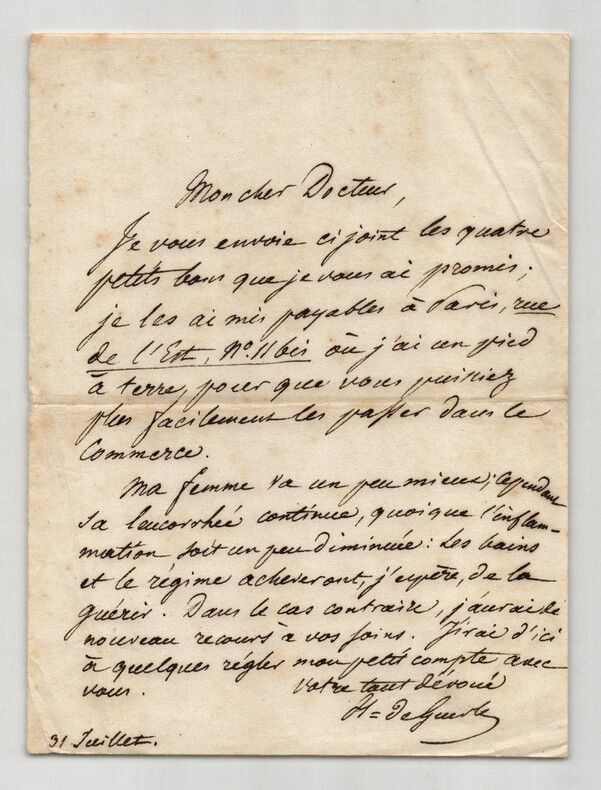 Mon cher Docteur,
Je vous envoie ci joint les quatre
petits bons que je vous ai promis;
je les ai mis payables à Paris, rue
de l'Est, No. 11 bis où j'ai un pied
à terre, pour que vous puissiez
plus facilement les passer dans le
Commerce.
Ma femme va un peu mieux; cependant
sa leucorrhée continue, quoique l'inflam-
mation soit un peu diminuée: Les bains
et le régime acheveront, j'espère, de la
guérir. Dans le cas contraire, j'aurai de
nouveau recours à vos soins. J'irai d'ici
à quelques régler mon petit compte avec
vous.
Votre tout dévoué
H= de Guerle
31 Juillet.